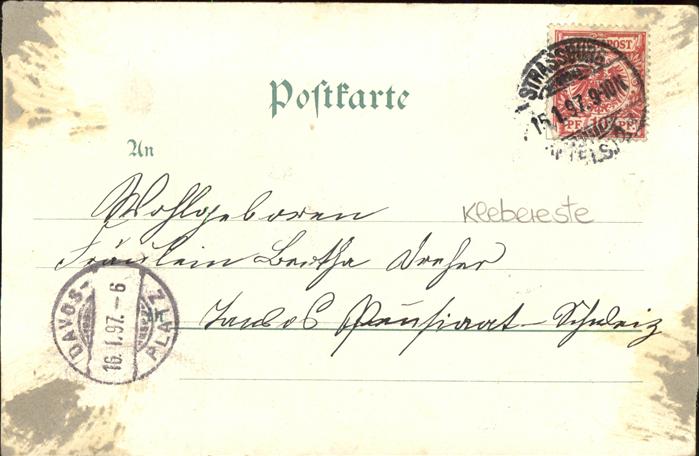 POST
STRASSBURG
15.1.97. 9-10N
PF 10 PF
Postkarte
An
Wohlgeboren
Klebereste
Fräulein Bertha Dreher
in
Davos - Schweiz
DAVOS-PLATZ
16.1.97.-6